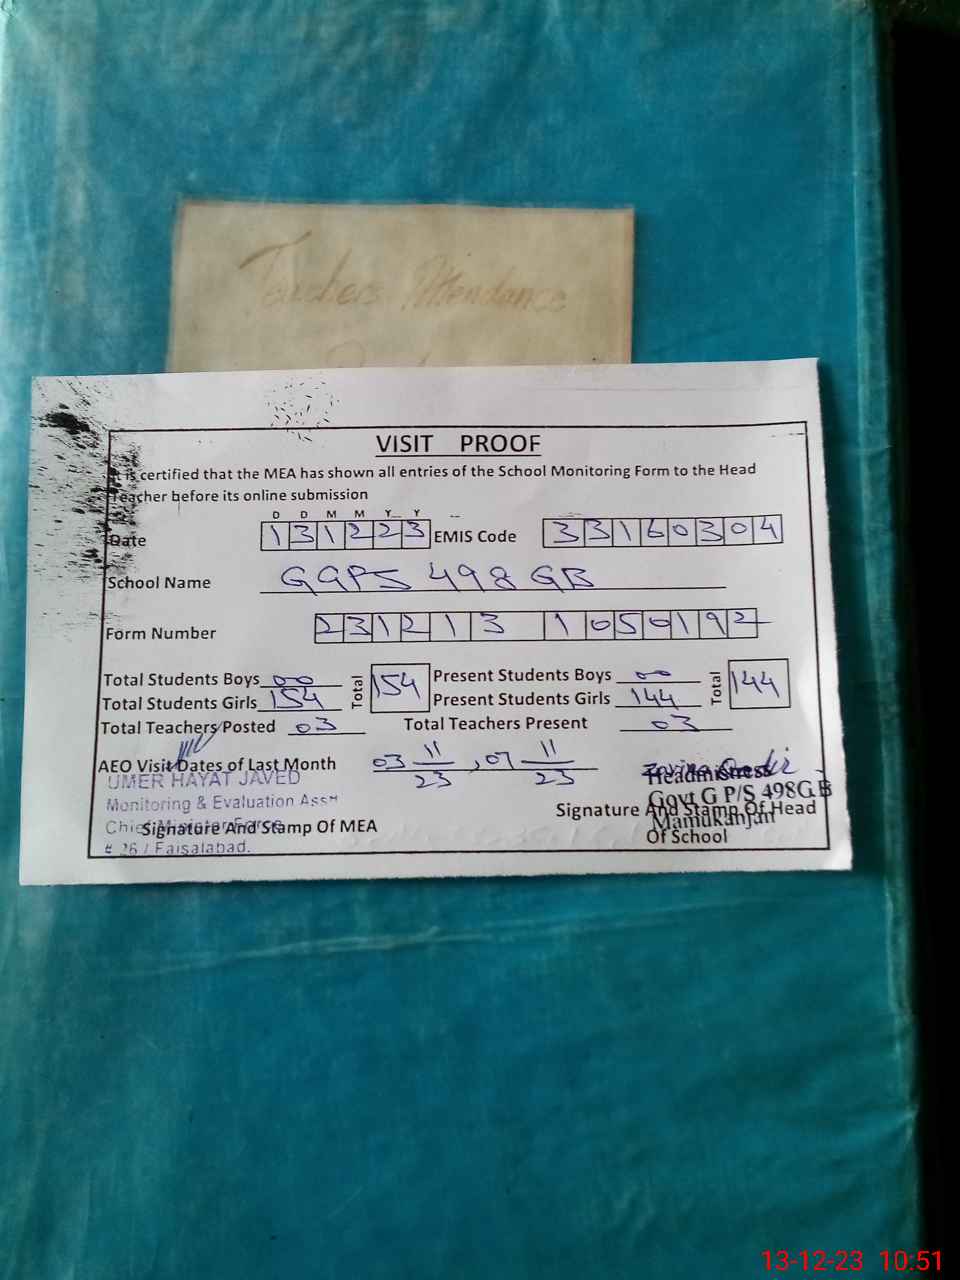 Teachers Attendance
VISIT PROOF
It is certified that the MEA has shown all entries of the School Monitoring Form to the Head
Teacher before its online submission
D D M M Y Y
Date 131223 EMIS Code 33160304
School Name GGPS 498 GB
Form Number 231213 1050192
Total Students Boys 00 Total 154 Present Students Boys 00 Total 144
Total Students Girls 154 Present Students Girls 144
Total Teachers Posted 03 Total Teachers Present 03
AEO Visit Dates of Last Month 03 11/23, 07 11/23
UMER HAYAT JAVED
Monitoring & Evaluation Asst
Chief Minister Force
# 26 / Faisalabad.
Signature And Stamp Of MEA
Headmistress
Govt G P/S 498G.B
Mamukanjan
Signature And Stamp Of Head
Of School
13-12-23 10:51